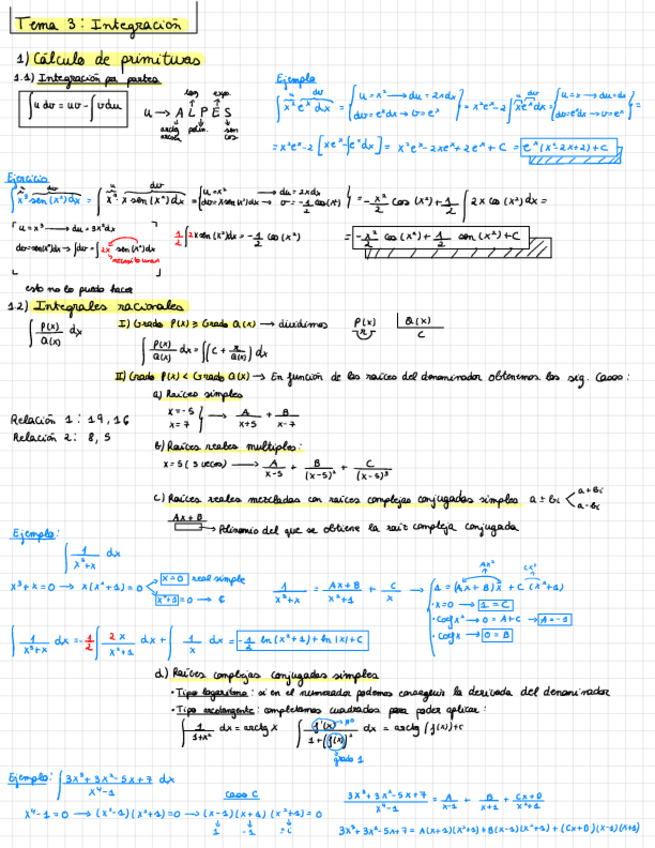 Tema 3: Integración
1) Cálculo de primitivas
1.1) Integración por partes
∫u dv = uv - ∫v du
u → A L P E S
log expo.
arctg arcsen polin. sen cos
Ejemplo
∫x² eˣ dx = { u = x² → du = 2x dx ; dv = eˣdx → v = eˣ } = x²eˣ - 2∫xeˣdx = { u = x → du = dx ; dv = eˣdx → v = eˣ } =
= x²eˣ - 2[xeˣ - ∫eˣdx] = x²eˣ - 2xeˣ + 2eˣ + C = eˣ(x² - 2x + 2) + C
Ejercicio
∫x³ sen(x²)dx = ∫x² · x sen(x²)dx = { u = x² → du = 2x dx ; dv = x sen(x²)dx → v = -1/2 cos(x²) } = -x²/2 cos(x²) + 1/2 ∫2x cos(x²)dx =
u = x³ → du = 3x²dx
dv = sen(x²)dx → ∫dv = ∫2x sen(x²)dx
necesito una x
1/2 ∫2x sen(x²)dx = -1/2 cos(x²)
= -x²/2 cos(x²) + 1/2 sen(x²) + C
esto no lo puedo hacer
1.2) Integrales racionales
∫ P(x)/Q(x) dx
I) Grado P(x) ≥ Grado Q(x) → dividimos P(x) | Q(x)
r C
∫ P(x)/Q(x) dx = ∫(C + r/Q(x)) dx
II) Grado P(x) < Grado Q(x) → En función de las raíces del denominador obtenemos los sig. casos:
a) Raíces simples
x = -5
x = 7 } → A/(x+5) + B/(x-7)
Relación 1: 19, 16
Relación 2: 8, 5
b) Raíces reales multiples:
x = 5 (3 veces) → A/(x-5) + B/(x-5)² + C/(x-5)³
c) Raíces reales mezcladas con raíces complejas conjugadas simples a ± bi < a + bi
a - bi
Ax + B
→ Polinomio del que se obtiene la raíz compleja conjugada
Ejemplo:
∫ 1/(x³+x) dx
x³ + x = 0 → x(x² + 1) = 0 < x = 0 real simple
x² + 1 = 0 → C
1/(x³+x) = (Ax+B)/(x²+1) + C/x → { 1 = (Ax + B)x + C(x² + 1)
Ax² Cx²
· x = 0 → 1 = C
· coef x² → 0 = A + C → A = -1
· coef x → 0 = B
∫ 1/(x³+x) dx = -1/2 ∫ 2x/(x²+1) dx + ∫ 1/x dx = -1/2 ln(x²+1) + ln|x| + C
d) Raíces complejas conjugadas simples
· Tipo logaritmo: si en el numerador podemos conseguir la derivada del denominador
· Tipo arcotangente: completamos cuadrados para poder aplicar:
∫ 1/(1+x²) dx = arctg x ∫ f'(x)/(1+(f(x))²) dx = arctg(f(x)) + C
grado 1
Ejemplo: ∫ (3x³ + 3x² - 5x + 7)/(x⁴ - 1) dx
caso C
x⁴ - 1 = 0 → (x² - 1)(x² + 1) = 0 → (x - 1)(x + 1)(x² + 1) = 0
1 -1 ±i
(3x³ + 3x² - 5x + 7)/(x⁴ - 1) = A/(x-1) + B/(x+1) + (Cx+D)/(x²+1)
3x³ + 3x² - 5x + 7 = A(x+1)(x²+1) + B(x-1)(x²+1) + (Cx+D)(x-1)(x+1)